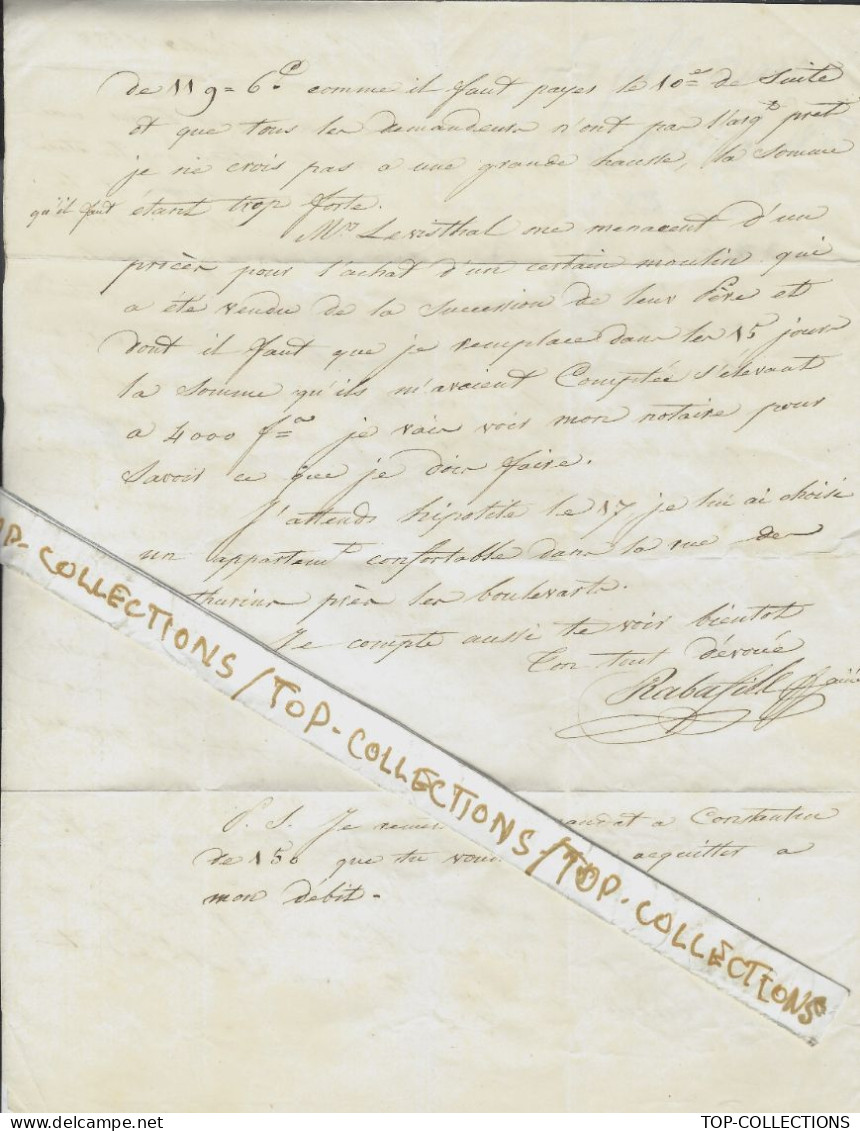 de 119 = 6c. comme il faut payer le 10e de suite
et que tous les demandeurs n'ont pas l'argt pret
je ne crois pas a une grande hausse, la somme
qu'il faut étant trop forte.
Mrs Levisthal me menacent d'un
procès pour l'achat d'un certain moulin qui
a été vendu de la succession de leur Père et
dont il faut que je remplace dans les 15 jours
la somme qu'ils m'avaient Comptée s'élevant
a 4000 fs je vais voir mon notaire pour
savoir ce que je dois faire.
J'attends hipolite le 17, je lui ai choisi
un appartemt confortable dans la rue des
thurins près les boulevarts.
Je compte aussi te voir bientot
Ton tout dévoué
aîné
P. S. Je andat a Constantin
de 150 que tu acquitter a
mon débit.
TOP-COLLECTIONS/TOP-COLLECTIONS/TOP-COLLECTIONS
TOP-COLLECTIONS